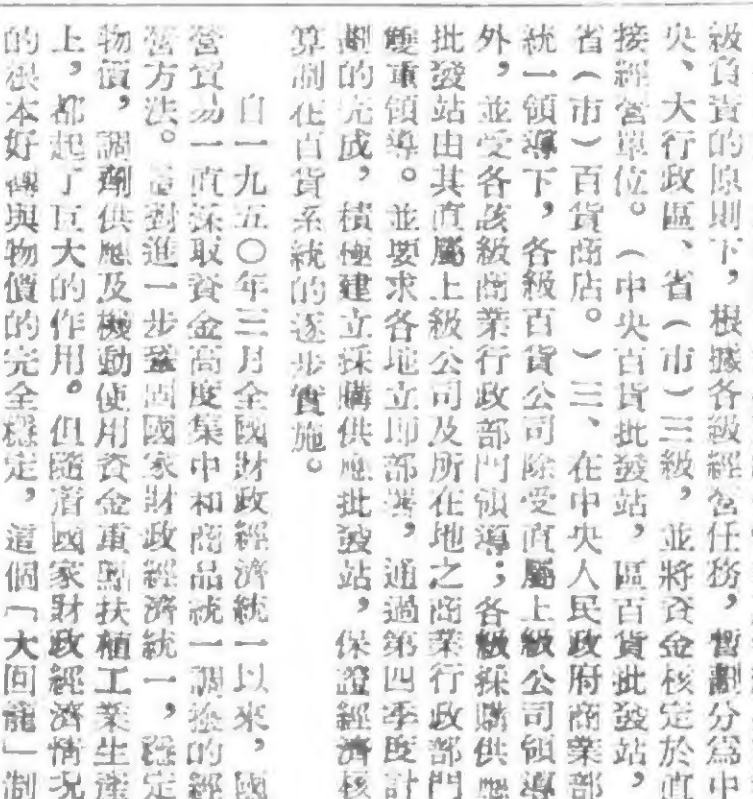 級負責的原則下，根據各級經營任務，暫劃分爲中
央、大行政區、省（市）三級，並將資金核定於直
接經營單位。（中央百貨批發站，區百貨批發站，
省（市）百貨商店。）三、在中央人民政府商業部
統一領導下，各級百貨公司除受直屬上級公司領導
外，並受各該級商業行政部門領導；各級採購供應
批發站由其直屬上級公司及所在地之商業行政部門
雙重領導。並要求各地立即部署，通過第四季度計
劃的完成，積極建立採購供應批發站，保證經濟核
算制在百貨系統的逐步實施。
自一九五〇年三月全國財政經濟統一以來，國
營貿易一直採取資金高度集中和商品統一調撥的經
營方法。這對進一步鞏固國家財政經濟統一，穩定
物價，調劑供應及機動使用資金重點扶植工業生產
上，都起了巨大的作用。但隨着國家財政經濟情況
的根本好轉與物價的完全穩定，這個「大回籠」制